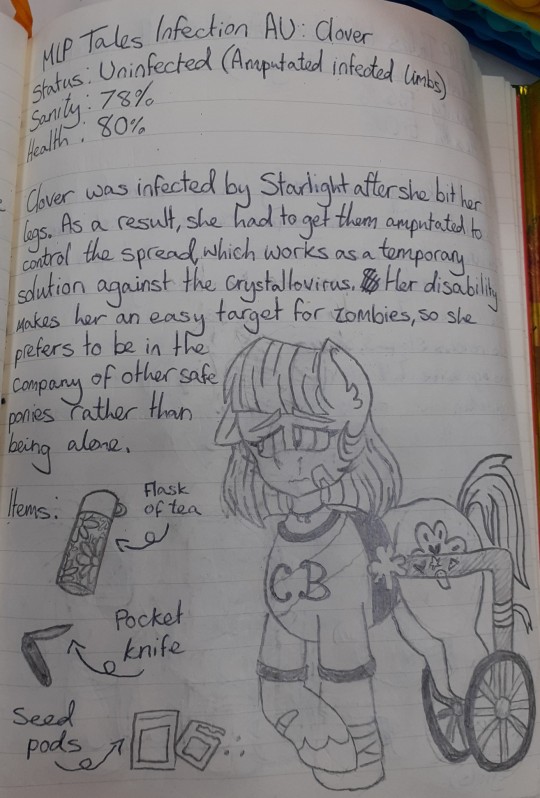 MLP Tales Infection AU: Clover
Status: Uninfected (Amputated infected limbs)
Sanity: 78%
Health: 80%
Clover was infected by Starlight after she bit her
legs. As a result, she had to get them amputated to
control the spread, which works as a temporary
solution against the Crystallovirus. Her disability
makes her an easy target for zombies, so she
prefers to be in the
company of other safe
ponies rather than
being alone.
Items:
Flask
of tea
Pocket
knife
Seed
pods
CB